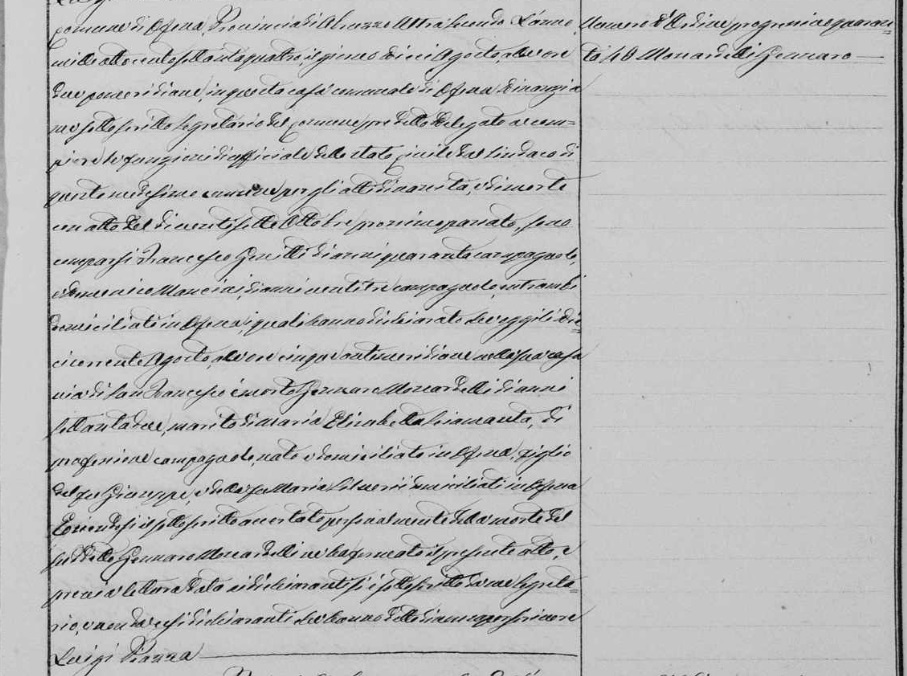 comune di Ofena, Provincia di Abruzzo Ultra Secondo L'anno
mille ottocento sessantaquattro, il giorno dieci Agosto, alle ore
due pomeridiane, in questa casa comunale di Ofena. Dinanzi a
me sottoscritto Segretario del Comune predetto delegato a com=
piere le funzioni di officiale dello stato civile dal Sindaco di
questo medesimo comune per gli atti di nascita, e di morte
con atto del di ventisette Ottobre prossimo passato, sono
comparsi Francesco Gentili di anni quaranta campagnolo,
e Domenico Mancini, di anni ventitre campagnolo, entrambi
domiciliati in Ofena, i quali hanno dichiarato che oggi li die=
ci corrente Agosto, alle ore cinque antimeridiane nella sua casa
via di San Francesco è morto Gennaro Moscardelli di anni
settantadue, marito di Maria Elisabetta, di
professione campagnolo, nato e domiciliato in Ofena, figlio
del fu Giuseppe, e della fu Maria domiciliati in Ofena
Essendosi il sottoscritto accertato personalmente della morte del
suddetto Gennaro Moscardelli ne ha formato il presente atto, e
previa lettura data ai dichiaranti si è sottoscritto da me Segreta=
rio, e non da essi dichiaranti che hanno detto di non saper scrivere
Luigi
Numero d'Ordine progressivo quaran=
ta 40 Moscardelli Gennaro